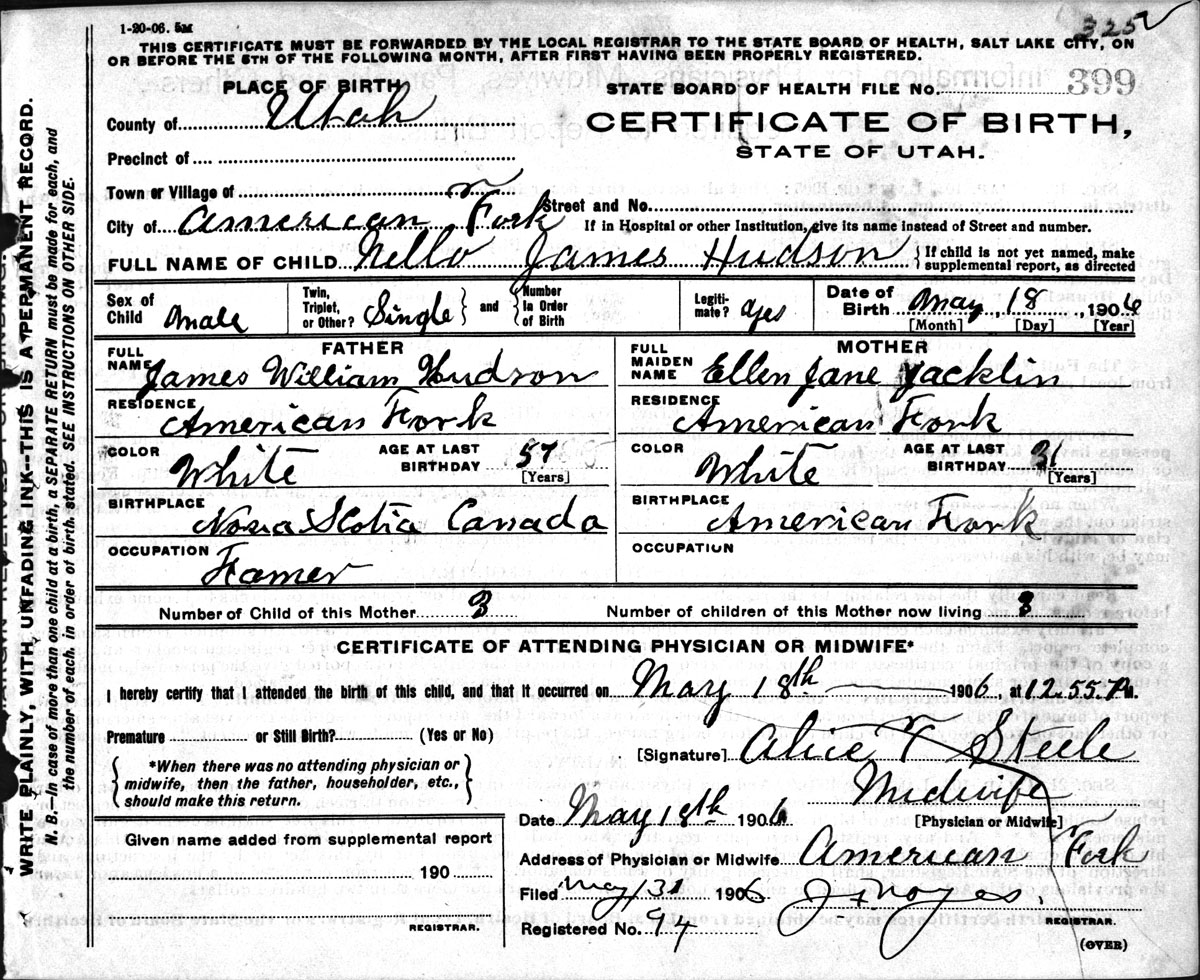 1-20-06. 5M
325
THIS CERTIFICATE MUST BE FORWARDED BY THE LOCAL REGISTRAR TO THE STATE BOARD OF HEALTH, SALT LAKE CITY, ON
OR BEFORE THE 5TH OF THE FOLLOWING MONTH, AFTER FIRST HAVING BEEN PROPERLY REGISTERED.
PLACE OF BIRTH
STATE BOARD OF HEALTH FILE No. 399
County of Utah
CERTIFICATE OF BIRTH,
Precinct of
STATE OF UTAH.
Town or Village of
City of American Fork Street and No.
If in Hospital or other Institution, give its name instead of Street and number.
FULL NAME OF CHILD Nello James Hudson { If child is not yet named, make supplemental report, as directed
Sex of Child Male Twin, Triplet, or Other? Single } and { Number in Order of Birth Legiti-mate? Yes Date of Birth May, 18, 1906
[Month] [Day] [Year]
FATHER MOTHER
FULL NAME James William Hudson FULL MAIDEN NAME Ellen Jane Jacklin
RESIDENCE American Fork RESIDENCE American Fork
COLOR White AGE AT LAST BIRTHDAY 57 [Years] COLOR White AGE AT LAST BIRTHDAY 31 [Years]
BIRTHPLACE Nova Scotia Canada BIRTHPLACE American Fork
OCCUPATION Famer OCCUPATION
Number of Child of this Mother 3 Number of children of this Mother now living 3
CERTIFICATE OF ATTENDING PHYSICIAN OR MIDWIFE*
I hereby certify that I attended the birth of this child, and that it occurred on May 18th 1906, at 12.55. M.
Premature or Still Birth? (Yes or No)
[Signature] Alice T Steele
{ *When there was no attending physician or midwife, then the father, householder, etc., should make this return. }
Midwife
Date May 18th 1906 [Physician or Midwife]
Given name added from supplemental report
Address of Physician or Midwife American Fork
190
Filed May 31 1906 J F Noyes.
REGISTRAR. Registered No. 94 REGISTRAR.
(OVER)
WRITE PLAINLY, WITH UNFADING INK—THIS IS A PERMANENT RECORD.
N. B.—In case of more than one child at a birth, a SEPARATE RETURN must be made for each, and
the number of each, in order of birth, stated. SEE INSTRUCTIONS ON OTHER SIDE.